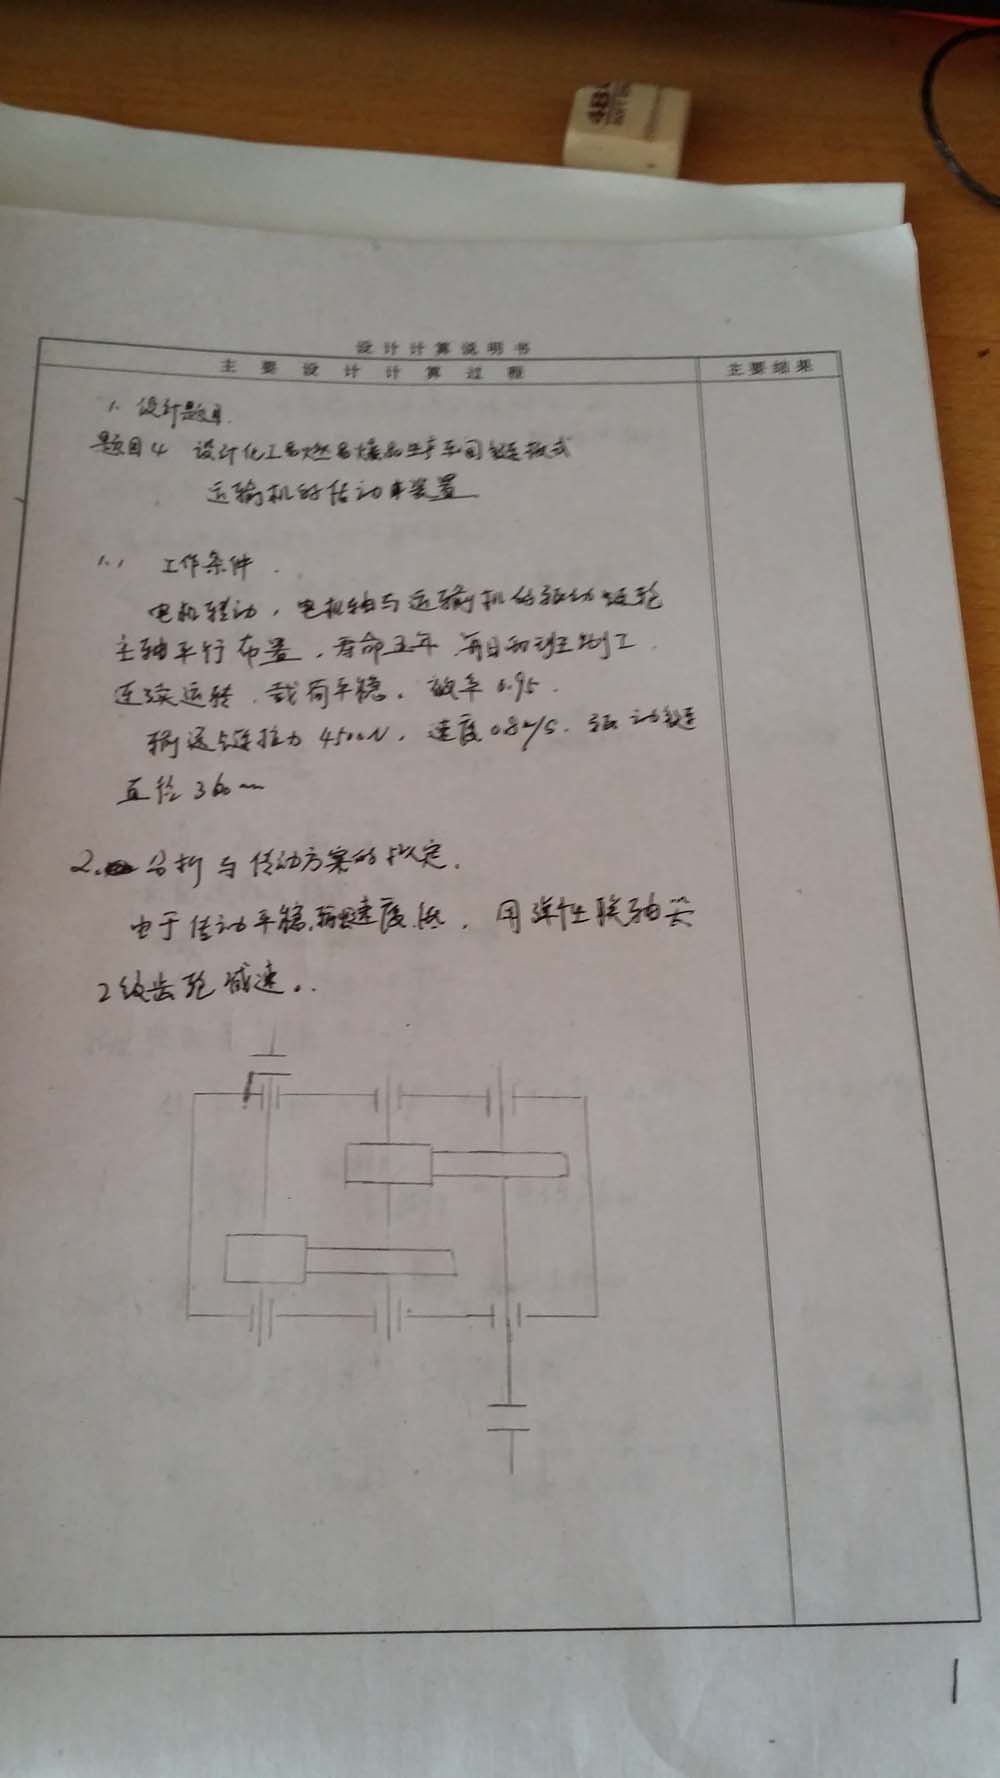 4B
设计计算说明书
主要设计计算过程
主要结果
1. 设计题目.
题目4 设计化工易燃易爆品生产车间链板式
运输机的传动装置
1.1 工作条件.
电机驱动，电机轴与运输机的驱动链轮
主轴平行布置，寿命五年，每日两班制工
连续运转，载荷平稳。效率0.95.
输送链拉力4500N，速度0.8m/s. 驱动链
直径360mm
2. 分析与传动方案的拟定.
由于传动平稳，速度低，用弹性联轴器
2级齿轮减速。
1